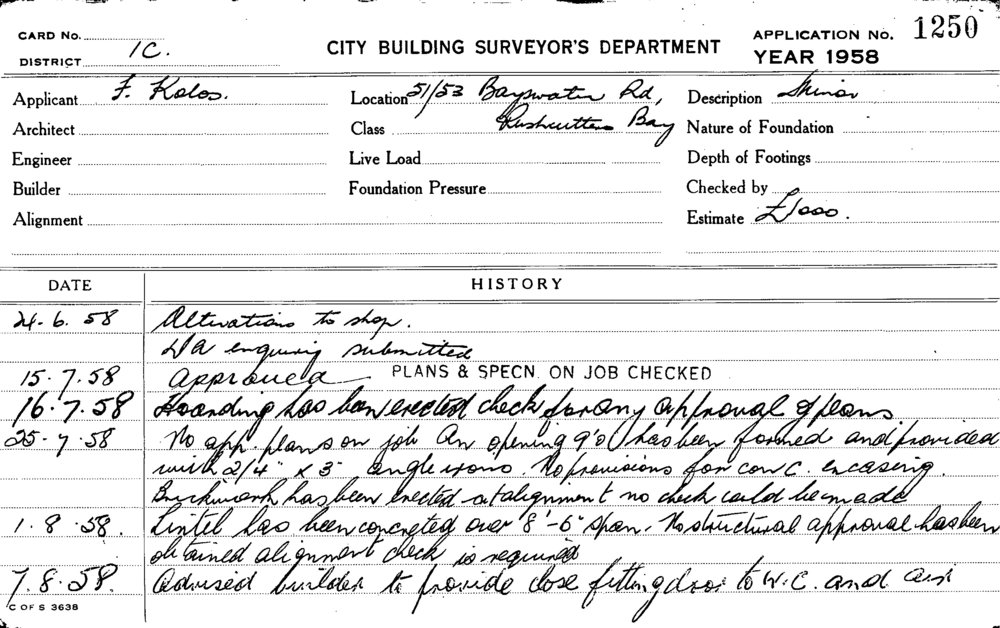 CARD No.
DISTRICT 1C.
CITY BUILDING SURVEYOR'S DEPARTMENT
APPLICATION No. 1250
YEAR 1958
Applicant F. Kolos. Location 51/53 Bayswater Rd, Description Minor
Architect Class Rushcutters Bay Nature of Foundation
Engineer Live Load Depth of Footings
Builder Foundation Pressure Checked by
Alignment Estimate £1000.
DATE HISTORY
24.6.58 Alterations to shop.
DA enquiry submitted
15.7.58 Approved PLANS & SPECN. ON JOB CHECKED
16.7.58 Hoarding has been erected check for any approval of plans
25.7.58 No app. plans on job An opening 9'0 has been formed and provided
with 2/4" x 3" angle irons. No provisions for conc. encasing.
Brickwork has been erected at alignment no check could be made
1.8.58. Lintel has been concreted over 8'-6" span. No structural approval has been
obtained alignment check is required
7.8.58. Advised builder to provide close fitting door to W.C. and air
C OF S 3638